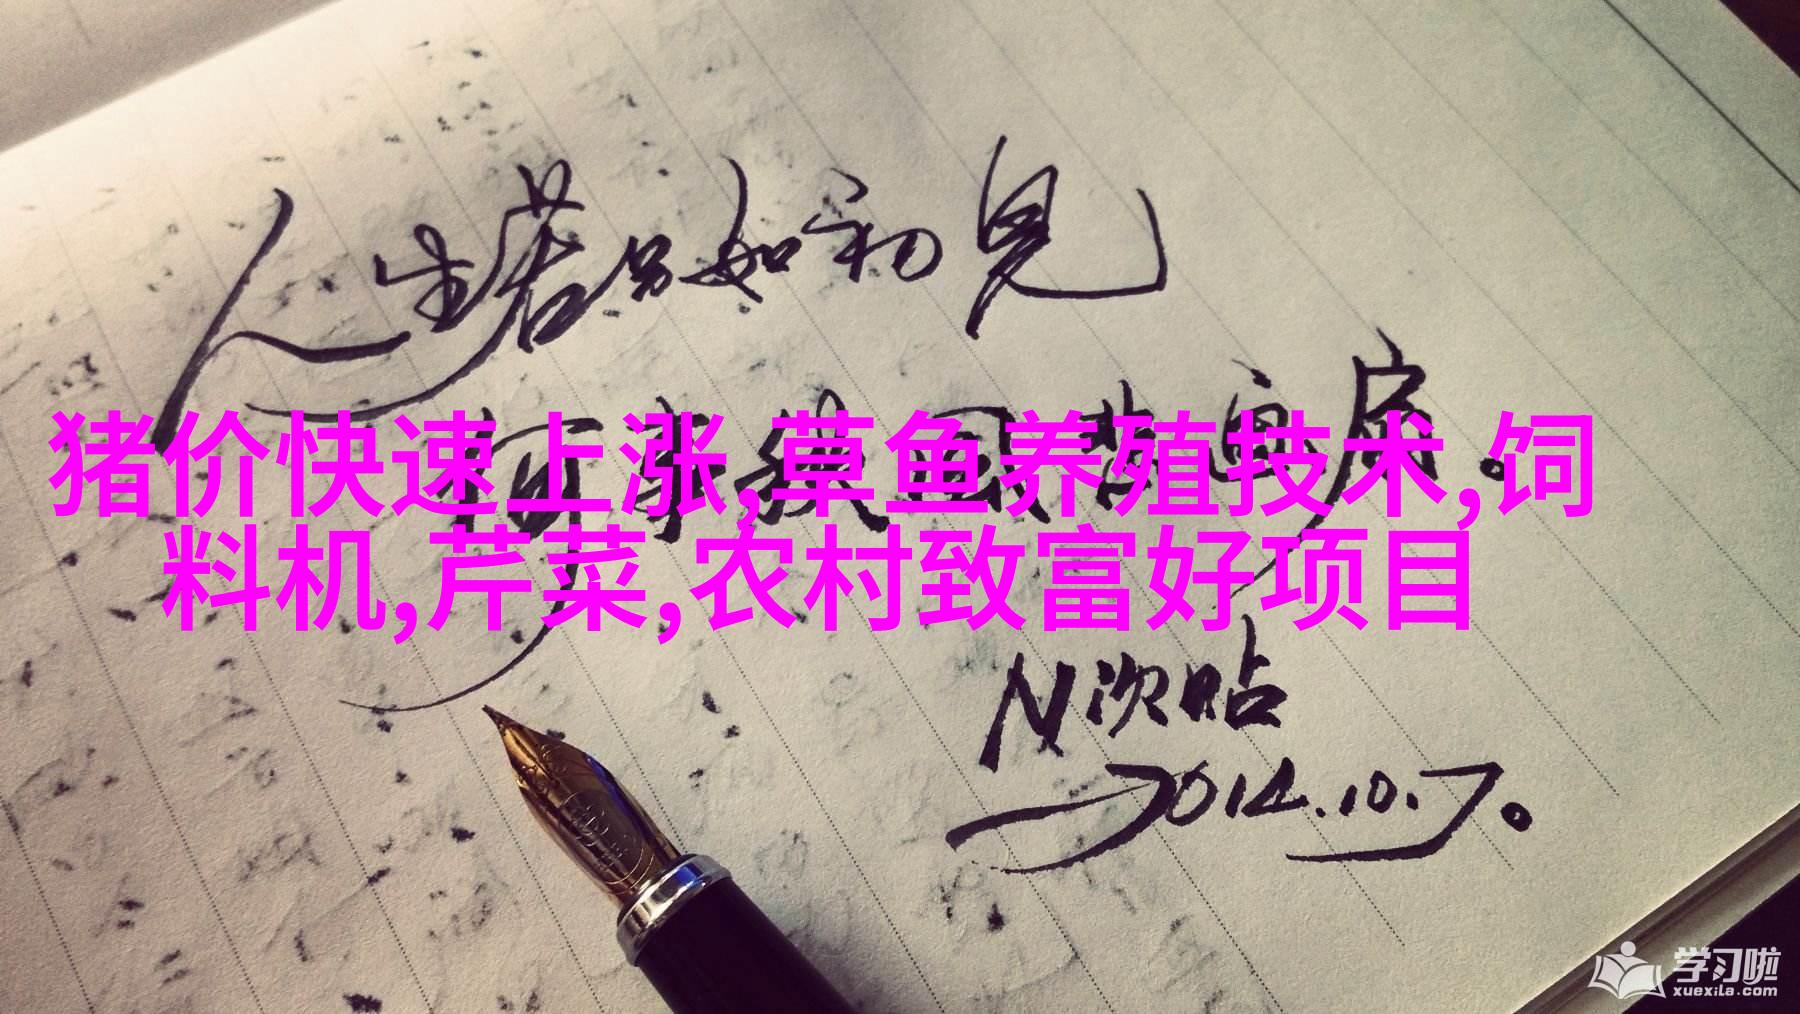 人生若只如初见
何事秋风悲画扇。
猪价快速上涨,草鱼养殖技术,饲
料机,芹菜,农村致富好项目
N次贴
2014.10.7。
学习啦
xuexila.com